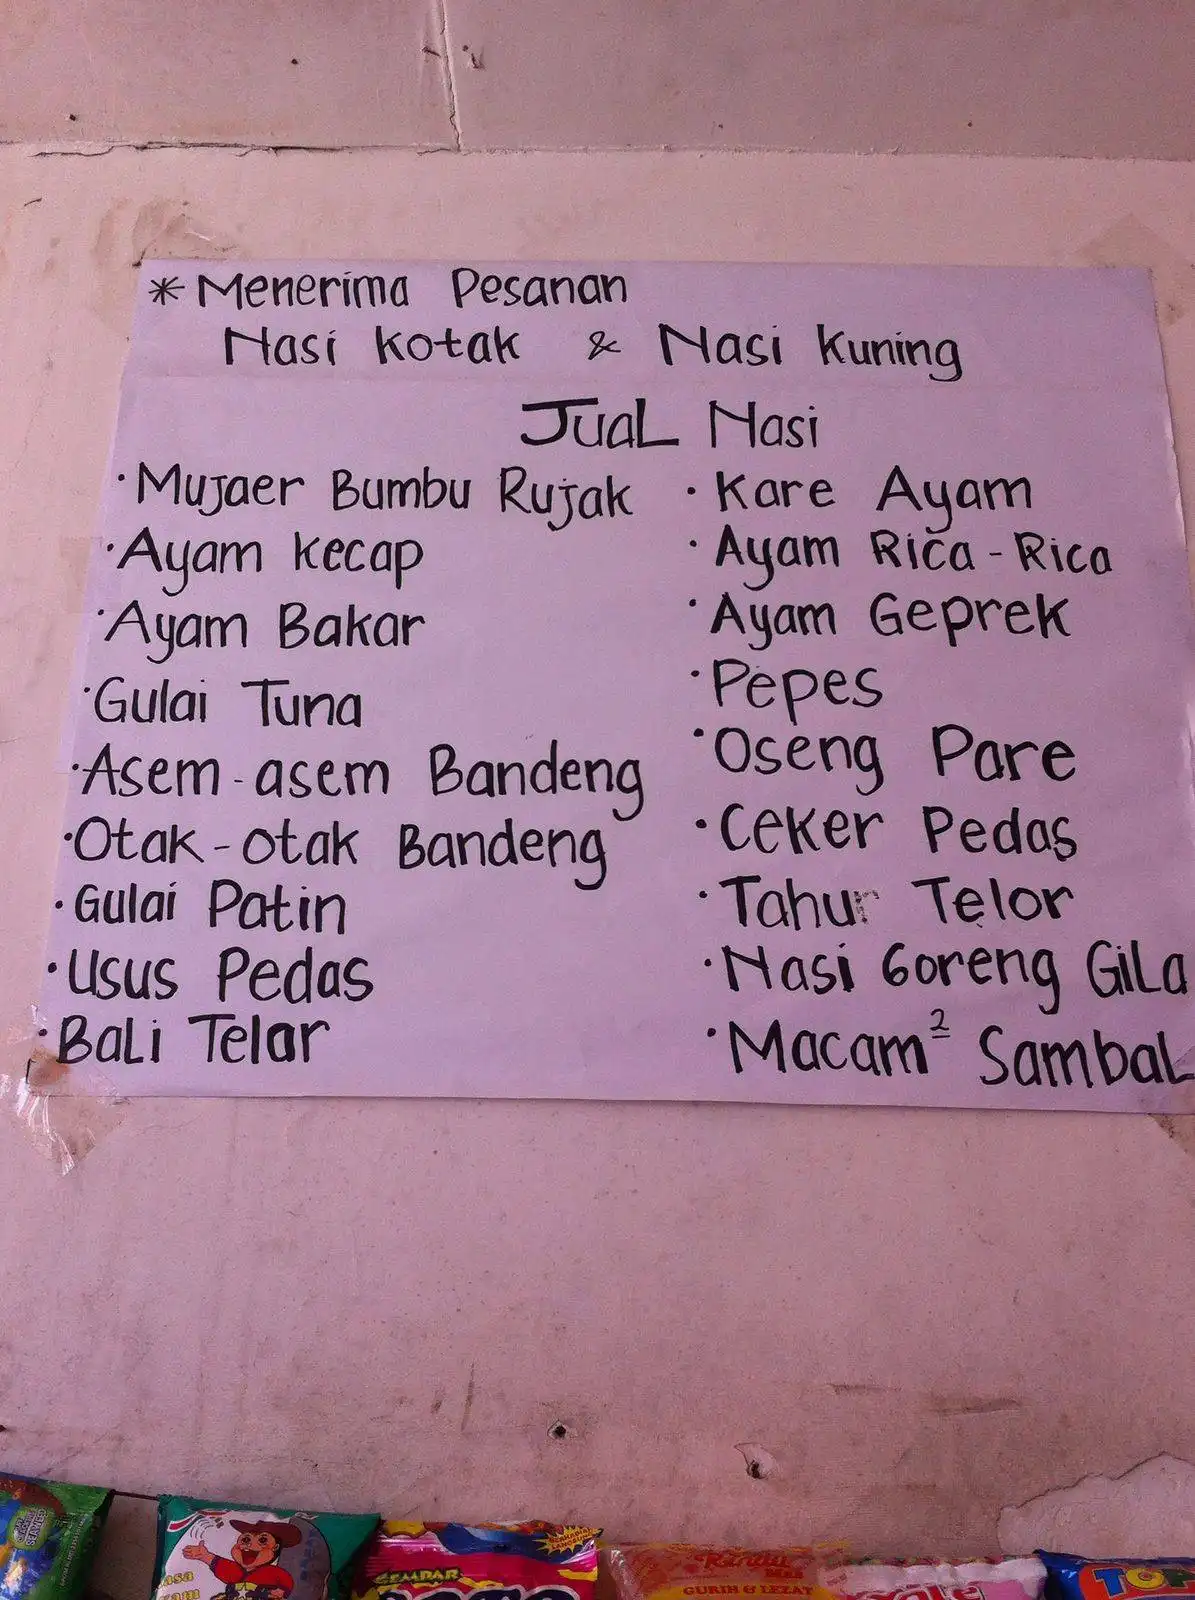 * Menerima Pesanan
Nasi Kotak & Nasi Kuning
Jual Nasi
· Mujaer Bumbu Rujak
· Ayam Kecap
· Ayam Bakar
· Gulai Tuna
· Asem-asem Bandeng
· Otak-otak Bandeng
· Gulai Patin
· Usus Pedas
· Bali Telar
· Kare Ayam
· Ayam Rica-Rica
· Ayam Geprek
· Pepes
· Oseng Pare
· Ceker Pedas
· Tahur Telor
· Nasi Goreng Gila
· Macam² Sambal
SEAWEED
GEMDAR
Randu
MAS
GURIH & LEZAT
TOP